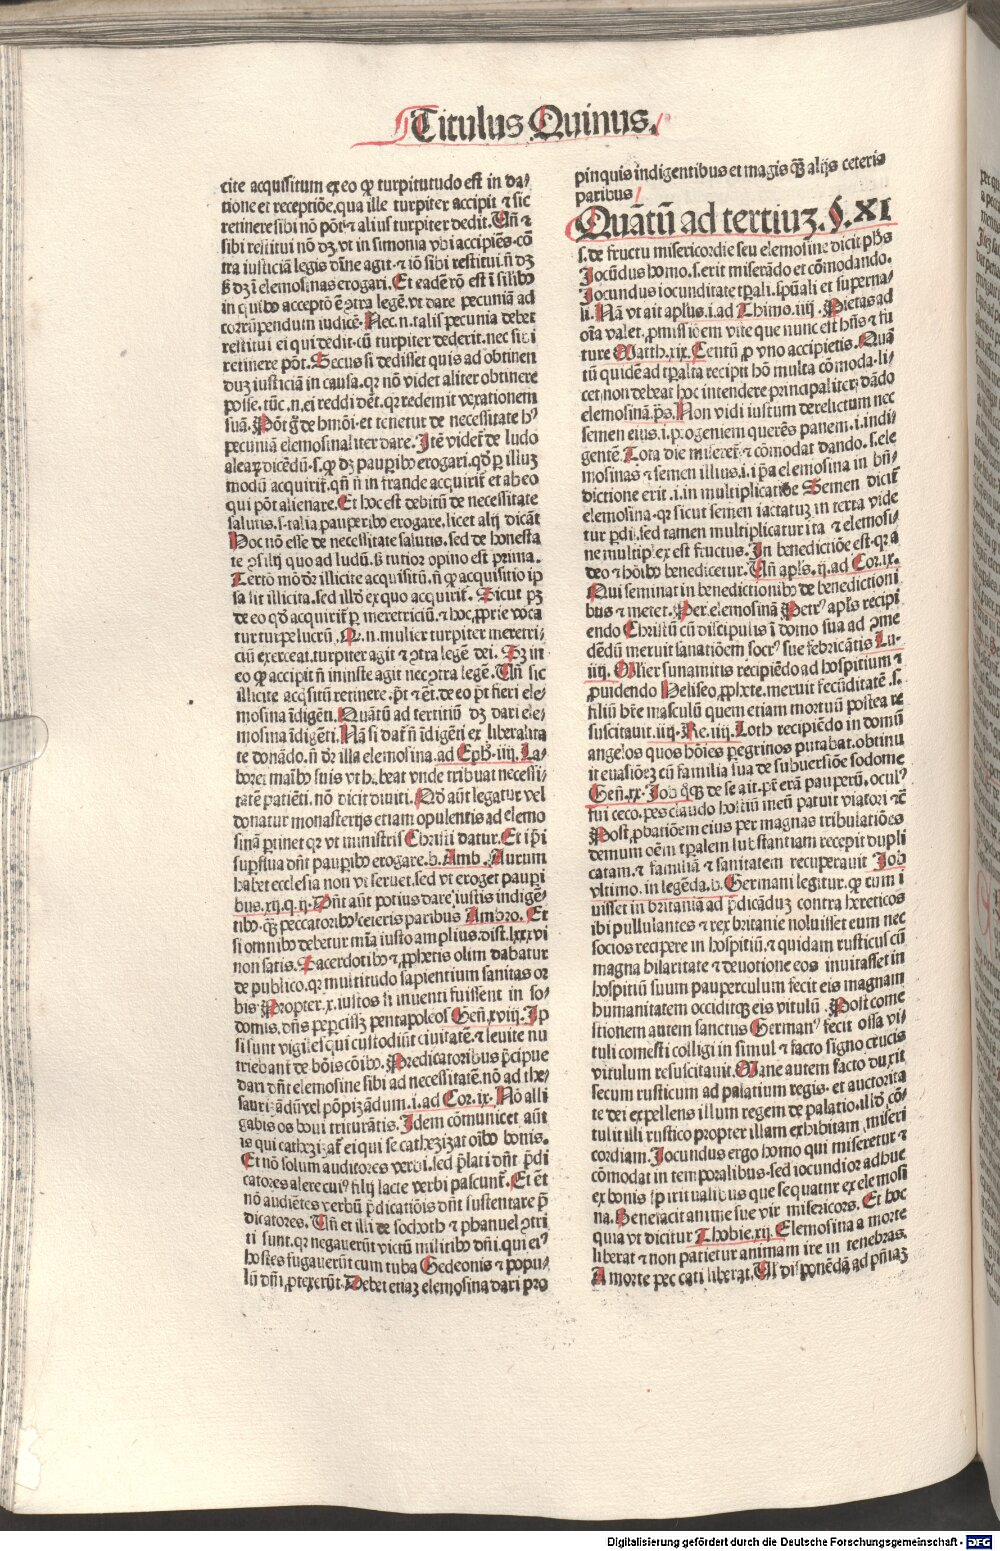 Titulus Quinus.
cite acquisitum ex eo qꝫ turpitutudo est in da⸗
tione et receptiōe. qua ille turpiter accipit ⁊ sic
retinere sibi nō pōt ⁊ alius turpiter dedit. Uñ ⁊
sibi restitui nō dꝫ. vt in simonia vbi accipiēs cō
tra iusticiā legis diuīne agit. ⁊ iō sibi restitui. ñ dꝫ
ß dꝫ ī elemosinas erogari. Et eadē rō est ī silībꝰ
in quibꝰ acceptō ē ꝯtra legē. vt dare pecuniā ad
corrūpendum iudicē. Nec .n. talis pecunia debet
restitui ei qui dedit. cū turpiter dederit. nec sibi
retinere pōt. Seccus si dedisset quis ad obtinen
duꝫ iusticiā in causa. qꝛ nō videt aliter obtinere
posse. tūc .n. ei reddi dēt. qꝛ redemit vexationem
suā. Pōt gͦ de hmōi. et tenetur de necessitate hꝰ
pecuniā elemosinaliter dare. Itē videt̃ de ludo
aleaꝝ dicēdū. s. qꝫ dꝫ pauꝑibꝰ erogari. qd̓ ꝑ illuꝫ
modū acquirit̃. qñ ñ in fraude acquirit̃ et ab eo
qui pōt alienare. Et hoc est debitū de necessitate
salutis. s. talia pauperibꝰ erogare. licet alij dicāt
Hoc nō esse de necessitate salutis. sed de honesta
te ꝯsilij quo ad ludū. ß tutior opino est prima.
Tertō mō dr̃ illicite acquisitū. ñ qꝫ acquisitio ip
sa sit illicita. sed illd̓ ex quo acquirit̃. Sicut pꝫ
de eo qd̓ acquirit̃ ꝑ meretriciū. ⁊ hoc ꝓprie voca
tur turpe lucrū. Qꝛ .n. mulier turpiter meretri⸗
ciū exerceat. turpiter agit ⁊ ꝯtra legē dei. Sꝫ in
eo qꝫ accipit ñ iniuste agit nec ꝯtra legē. Uñ sic
illicite acq̄sitū retinere. p̄t ⁊ et̄. de eo p̄t fieri ele⸗
mosina īdigēti. Quātū ad tertitiū dꝫ dari ele⸗
mosina īdigēti. Nā si dat̃ ñ īdigēti ex liberalita
te donādo. ñ dr̃ illa elemosina. ad Eph̓. iiij. La⸗
boret maībꝰ suis vt habeat vnde tribuat necessi⸗
tatē patiēti. nō dicit diuiti. Qd̓ aūt legatur vel
donatur monasterijs etiam opulentis ad elemo
sinā ꝑtinet qꝛ vt ministris Christi datur. Et ip̄i
suꝑflua dn̄t pauꝑibꝰ erogare. b. Amb. Aurum
habet ecclesia non vt seruet. sed vt eroget pauꝑi
bus. xij. q. ij. Dn̄t aūt potius dare iustis indigē⸗
tibꝰ. qꝫ̃ peccatoribꝰ ceteris paribus Ambro. Et
si omnibꝰ debetur mīa iusto amplius. dist. lxxxvi
non satis. Sacerdotibꝰ ⁊ ꝓphetis olim dabatur
de publico. qꝛ multitudo sapientium sanitas or
bis. Propter .x. iustos si inuenti fuissent in so⸗
domis. dn̄s peꝑcissꝫ pentapoleos Geñ. xviij. Ip
si sunt vigiles qui custodiūt ciuitatē. ⁊ leuite nu
triebant de bōis cōibꝰ. Predicatoribus p̄cipue
dari dn̄t elemosine sibi ad necessitatē. nō ad the⸗
saurizādū vel pōpizādum. i. ad Cor. ix. Nō alli
gabis os boui trituratis. Idem cōmunicet aūt
is qui cathezizat̃ ei qui se cathezizat oībꝰ bonis.
Et nō solum auditores verbi. sed p̄lati dn̄t p̄di
catores alere cuiꝰ filij lacte verbi pascunt̃. Et eēt
nō audiētes verbū p̄dicatiōis dn̄t sustentare p̄
dicatores. Uñ et illi de sochoth ⁊ phanuel ꝯtri
ti sunt. qꝛ negauerūt victū militibꝰ dn̄i. qui eiꝰ
hostes fugauerūt cum tuba Gedeonis ⁊ popu⸗
lū dn̄i ꝓtexerūt. Debet etiaꝫ elemosina dari pro
pinquis indigentibus et magis qꝫ̃ alijs ceteris
paribus
Quātū ad tertiuꝫ. §. XI
s. de fructu misericordie seu elemosine dicit ph̄s
Jocūdus homo. s. erit miserādo et cōmodando.
Jocundus iocunditate tꝑali. spūali et superna⸗
li. Nā vt ait apl̄us. i. ad Thimo. iiij. Pietas ad
oīa valet. ꝓmissiōem vite que nunc est hn̄s ⁊ fu
ture Matth. xix. Centū ꝓ vno accipietis. Quā
tū quidē ad tꝑalia recipit hō multa cōmoda. li⸗
cet non debeat hoc intendere principaliter dādo
elemosinā. p̄s. Non vidi iustum derelictum nec
semen eius. i. ꝓgeniem querēs panem. i. indi⸗
gentē. Tota die miseret̃ ⁊ cōmodat dando. s. ele
mosinas ⁊ semen illius. i. ip̄a elemosina in bn̄⸗
dictione erit. i. in multiplicatiōe Semen dicit̃
elemosina. qꝛ sicut semen iactatuꝫ in terra vide
tur perdi. sed tamen multiplicatur ita ⁊ elemosi⸗
ne multiplex est fructus. In benedictiōe est. qꝛ a
deo ⁊ hōibꝰ benedicetur. Uñ apl̄s. ij. ad Cor. ix.
Qui seminat in benedictionibꝰ de benedictioni
bus ⁊ metet. Per elemosinā Petrꝰ apl̄s recipi
endo Christū cū discipulis ī domo sua ad ꝯme
dēdū meruit sanatiōem socrꝰ sue febricātis Lu⸗
iiij. Mulier sunamitis recipiēdo ad hospitium ⁊
ꝓuidendo Heliseo ꝓph̄ete. meruit fecūditatē. s.
filiū hr̄e masculū quem etiam mortuū postea re
suscitauit. iiij. Re. iiij. Loth recipiēdo in domū
angelos quos hōies peregrinos putabat. obtinu
it euasiōeꝫ cū familia sua de subuersiōe sodome
Geñ. xx. Job qꝫqꝫ de se ait. pr̄ erā pauperū. oculꝰ
fui ceco. pes claudo hostiū meū patuit viatori ⁊c̄
Post ꝓbatiōem eius per magnas tribulatiōes
demum oēm tꝑalem substantiam recepit dupli
catam. ⁊ familiā ⁊ sanitatem recuperauit Job
vltimo. in legēda. b. Germani legitur. qꝫ cum i
uisset in britaniā ad p̄dicāduꝫ contra hereticos
ibi pullulantes ⁊ rex britanie noluisset eum nec
socios recipere in hospitiū. ⁊ quidam rusticus cū
magna hilaritate ⁊ deuotione eos inuitasset in
hospitiū suum pauperculum fecit eis magnam
humanitatem occiditqꝫ eis vitulū. Post come
stionem autem sanctus Germanꝰ fecit ossa vi⸗
tuli comesti colligi in simul ⁊ facto signo crucis
vitulum resuscitauit. Mane autem facto duxit
secum rusticum ad palatium regis. et auctorita
te dei expellens illum regem de palatio. illd̓ cō⸗
tulit illi rustico propter illam exhibitam miseri
cordiam. Jocundus ergo homo qui miseretur ⁊
cōmodat in temporalibus. sed iocundior adhuc
ex bonis spiritualibus que sequatur ex elemosi
na. Benefacit anime sue vir misericors. Et hoc
quia vt dicitur Thobie. xij. Elemosina a morte
liberat ⁊ non patietur animam ire in tenebras.
A morte peccati liberat. Ul̓ disponēdaꝫ ad pn̄iaꝫ
Digitalisierung gefördert durch die Deutsche Forschungsgemeinschaft - DFG